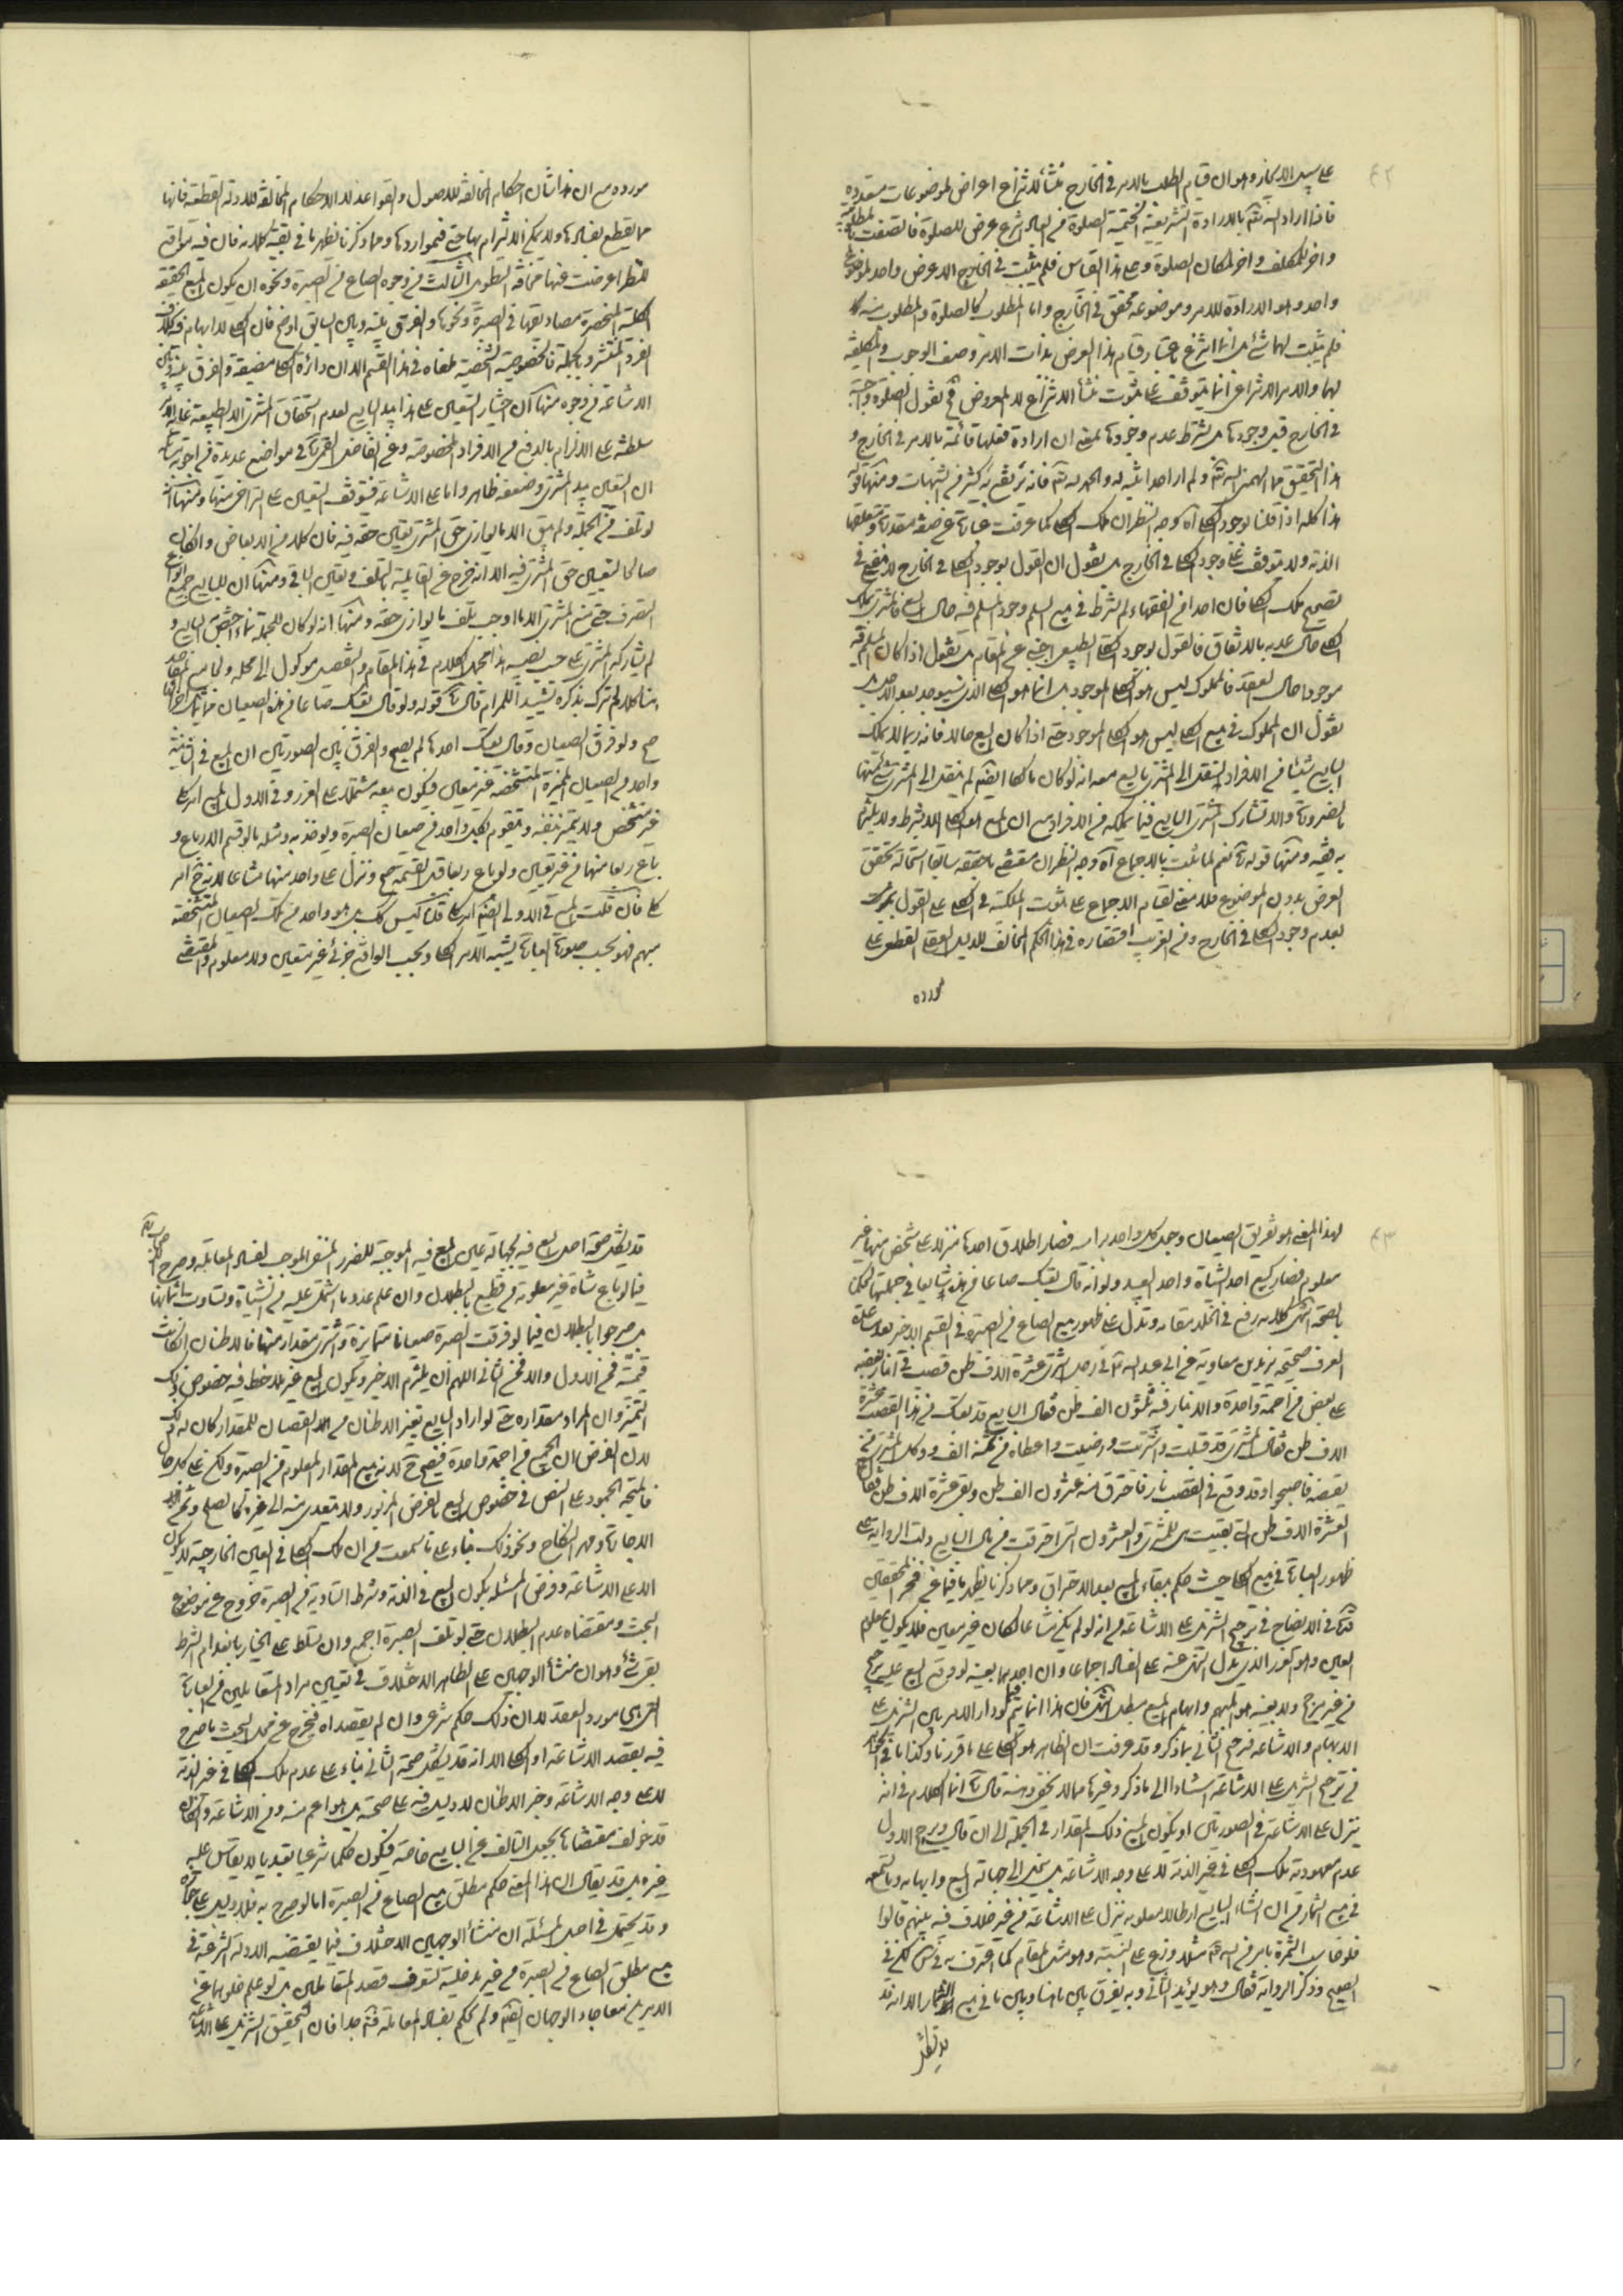 ٤٢
على سبيل الايجاز وهو ان قيام الطلب بالامر في الخارج منشأ لانتزاع اعراض لموضوعات متعددة
فاذا اراد الله تعالى بالارادة التشريعية الحتمية الصلوة في الشرع عرض للصلوة فاتصفت بالمطلوبية
واخر للمكلف واخر لمكان الصلوة وعلى هذا القياس فلم يثبت في الخارج الا عرض واحد لموضوع
واحد وهو الارادة للامر وموضوعه محقق في الخارج واما المطلوب كالصلوة والمطلوب منه
فلم يثبت لهما شيء بل انما انتزع باعتبار قيام هذا العرض بذات الامر وصف الوجوب والمكلفية
لهما والامر الانتزاعي انما يتوقف على ثبوت منشأ الانتزاع لا المعروض فح نقول الصلوة واجبة
في الخارج قبل وجودها بل بشرط عدم وجودها بمعنى ان ارادة فعلها قائمة بالامر في الخارج و
هذا التحقيق مما الهمني الله تعالى ولم ار احدا نبه له والحمد لله تعالى فانه يرتفع به كثير من الشبهات ومنها قوله
هذا كله اذا قلنا بوجود الكلي اه وجه النظر ان ملك الكلي كما عرفت عبارة عن صفة مقدرة ومتعلقها
الذمة ولا يتوقف على وجود الكلي في الخارج بل نقول ان القول بوجود الكلي في الخارج لا ينفع في
تصحيح ملك الكلي فان احدا من الفقهاء لم يشترط في بيع السلم وجود المسلم فيه حال البيع فالمشتري يملك
الكلي حال عدمه بالاتفاق فالقول بوجود الكلي الطبيعي اجنبي عن المقام بل نقول اذا كان المسلم فيه
موجودا حال العقد فالمملوك ليس هو الكلي الموجود بل انما هو الكلي الذي سيوجد بعد الاجل بل
نقول ان المملوك في بيع الكلي ليس هو الكلي الموجود حتى اذا كان البيع حالا فانه ربما لا يملك
البايع شيئا من الافراد لينتقل الى المشتري بالبيع مع انه لو كان مالكا ايضا لم ينتقل الى المشتري شيء منها
بالضرورة والا تشارك المشتري البايع فيما يملكه من الافراد مع ان المبيع هو الكلي الا بشرط ولا يلتزم
به فقيه ومنها قوله نعم لما ثبت بالاجماع اه وجه النظر ان مقتضى ما حققه سابقا استحالة تحقق
العرض بدون الموضوع فلا معنى لقيام الاجماع على ثبوت الملكية في الكلي على القول
بعدم وجود الكلي في الخارج ومن الغريب اقتصاره في هذا الحكم المخالف للدليل العقلي القطعي على
مورده
مورده مع ان هذا شأن احكام المخالفة للاصول والقواعد لا الاحكام المخالفة للادلة القطعية فانها
مما نقطع بفسادها ولا يمكن الالتزام بها حتى في مواردها ومما ذكرنا يظهر ما في بقية كلامه فان فيه مواقع
للنظر اعرضت عنها مخافة التطويل الثالث من وجوه الصاع من الصبرة ونحوه ان يكون المبيع الحقيقة
الكلية المنحصرة مصاديقها في الصبرة ونحوها والفرق بينه وبين السابق اوضح فان الكلي لا ابهام فيه بخلاف
الفرد المنتشر وبالجملة فالخصوصية الشخصية ملغاه في هذا القسم الا ان دائرة الكلي مضيقة والفرق بينه وبين
الاشاعة من وجوه منها ان اختيار التعيين على هذا بيد البايع لعدم استحقاق المشتري الا الطبيعة
سلطنته على الالزام بالدفع من الافراد المخصوصة وعن الفاضل القمي في مواضع عديدة من اجوبة مسائله
ان التعيين بيد المشتري وضعفه ظاهر واما على الاشاعة فيتوقف التعيين على التراضي منهما ومنها انه
لو تلف من الجملة ولم يبق الا ما يوازي حق المشتري تعين حقه فيه فان كلا من الابعاض وان كان
صالحا لتعيين حق المشتري فيه الا انه خرج عن القابلية بالتلف وتعين الباقي ومنها ان للبايع جميع انواع
التصرف حتى منع المشتري الا ما اوجب تلف ما يوازي حقه ومنها انه لو كان للجملة نماء اختص البايع و
لم يشاركه المشتري على حسب نصيبه هذا مجمل الكلام في هذا المقام والتفصيل موكول الى محله
بنا كلام لا نترك بذكره تشييدا للمرام قال قوله ولو قال بعتك صاعا من هذه الصيعان
صح ولو فرق الصيعان وقال بعتك احدها لم يصح والفرق بين الصورتين ان المبيع في الثانية
واحد من الصيعان المميزة المتشخصة غير متعين فيكون بيعه مشتملا على الغرر وفي الاول المبيع امر كلي
غير متشخص ولا متميز بنفسه ويتقوم بكل واحد من صيعان الصبرة ويوجد به ومثله ما لو قسم الارباع و
باع ربعا منها من غير تعيين ولو باع ربعا قبل القسمة صح ونزل على واحد منها مشاعا لانه ح امر
كلي فان قلت المبيع في الاولى ايضا امر كلي قلنا ليس كذلك بل هو واحد من تلك الصيعان المتشخصة
مبهم فهو بحسب صورة العبارة يشبه الامر الكلي وبحسب الواقع جزئي غير متعين ولا معلوم والمقتضي
٤٣
لهذا المعنى هو تفريق الصيعان وجعل كل واحد براسه فصار اطلاق احدها منزلا على شخص منها غير
معلوم فصار كبيع احد الشياه واحد العبيد ولو انه قال بعتك صاعا من هذه شايعا في جملتها لحكمنا
بالصحة انتهى كلامه رفع في الخلد مقامه وتدل على ظهور بيع الصاع من الصبرة في القسم الاخير بعد مساعدة
العرف صحيحة بريد بن معاوية عن ابي عبد الله في رجل اشترى عشرة الاف طن قصب في انبار بعضه
على بعض من اجمة واحدة والانبار فيه ثلثون الف طن فقال البايع قد بعتك من هذا القصب عشرة
الاف طن فقال المشتري قد قبلت واشتريت ورضيت واعطاه من ثمنه الف ووكل المشتري من
يقبضه فاصبحوا وقد وقع في القصب نار فاحترق منه عشرون الف طن وبقي عشرة الاف طن فقال
العشرة الاف طن التي بقيت هي للمشتري والعشرون التي احترقت من مال البايع دلت الرواية على
ظهور العبارة في بيع الكلي حيث حكم ببقاء المبيع بعد الاحتراق ومما ذكرنا يظهر ما فيما عن فخر المحققين
في الايضاح في ترجيح التنزيل على الاشاعة من انه لو لم يكن مشاعا لكان غير معين فلا يكون معلوم
العين وهو الغرر الذي يدل النهي عنه على الفساد اجماعا ولان احدهما بعينه لو وقع البيع عليه ترجيح
من غير مرجح ولا بعينه هو المبهم وابهام المبيع مبطل انتهى فان هذا انما يتم لو دار الامر بين التنزيل على
الابهام والاشاعة فرجح الثاني بما ذكر وقد عرفت ان الظاهر هو الكلي على ما قررنا وكذا ما في
في ترجيح التنزيل على الاشاعة استنادا الى ما ذكر وغيرها مما لا يخفى وهنه قال انما الكلام في انه
ينزل على الاشاعة في الصورتين او يكون المبيع ذلك المقدار في الجملة الى ان قال ويرجح الاول
عدم معهودية ملك الكلي في غير الذمة لا على وجه الاشاعة بل ينجر الى جهالة المبيع وابهامه وبالتتبع
في بيع الثمار من ان استثناء البايع ارطالا معلومة ينزل على الاشاعة من غير خلاف فيه بينهم قالوا
فلو خاست الثمرة بامر من الله تعالى مثلا وزع على النسبة وهو مثل المقام كما اعترف به
الصحيح وذكر الرواية فقال وهو يؤيد الثاني وبه يفرق بين ما هنا وبين ما في بيع الثمار الا انه قد
يستشكل
قد يشكل صحة اصل البيع فيه لجهالة عين المبيع فيه الموجبة للضرر المنفي الموجب لفساد المعاملة وصرح الاصحاب
فيما لو باع شاة غير معلومة من قطيع بالبطلان وان علم عدد ما اشتمل عليه من الشياة وتساوت اثمانها
بل صرحوا بالبطلان فيما لو فرقت الصبرة صيعانا متمايزة واشترى مقدارا منها فالاطنان ان كانت
قيمته فمن الاول والا فمن الثاني اللهم ان يلتزم الاخير ويكون المبيع غير ملاحظ فيه خصوص ذلك
التميز وان المراد مقداره حتى لو اراد البايع تغيير الاطنان مع القصبان للمقدار كان له ذلك
لان الفرض ان الجميع من اجمة واحدة فيصح ح لانه بيع المقدار المعلوم من الصبرة ولكن على كل حال
فالمتجه الجمود على النص في خصوص المبيع بالفرض المزبور ولا يتعدى منه الى غيره كالصلح وثمن
الاجارة ومهر النكاح ونحو ذلك بناء على ما سمعت من ان ملك الكلي في العين الخارجية لا يكون
الا على الاشاعة وفرض المسئلة بكون المبيع في الذمة وشرط التادية من الصبرة خروج عن موضوع
البحث ومقتضاه عدم البطلان حتى لو تلف الصبرة اجمع وان تسلط على الخيار بانعدام الشرط
بقي شيء وهو ان منشأ الوجهين على الظاهر الاختلاف في تعيين مراد المتعاملين من العبارة
التي هي مورد العقد لا ان ذلك حكم شرعي وان لم يقصداه فيخرج عن محل البحث ما صرح
فيه بقصد الاشاعة او الكلي الا انه قد يشكل صحة الثاني بناء على عدم ملك الكلي في غير الذمة
لا على وجه الاشاعة وخبر الاطنان لا دليل فيه على صحته بل هو اعم منه ومن الاشاعة وان كان
قد خولف مقتضاها بجعل التالف من البايع خاصة فيكون حكما شرعيا تعبديا لا يقاس عليه
غيره بل قد يقال ان هذا المعنى حكم مطلق بيع الصاع من الصبرة اما لو صرح به فلا دليل على جوازه
وقد يحتمل في اصل المسئلة ان منشأ الوجهين الاختلاف فيما يقتضيه الادلة الشرعية في
بيع مطلق الصاع من الصبرة من غير مدخلية لتعرف قصد المتعاملين بل لو علم خلوهما عن
الامرين معا جاء الوجهان ايضا ولم يحكم بفساد المعاملة فتأمل جدا فان التحقيق التنزيل على الاشاعة